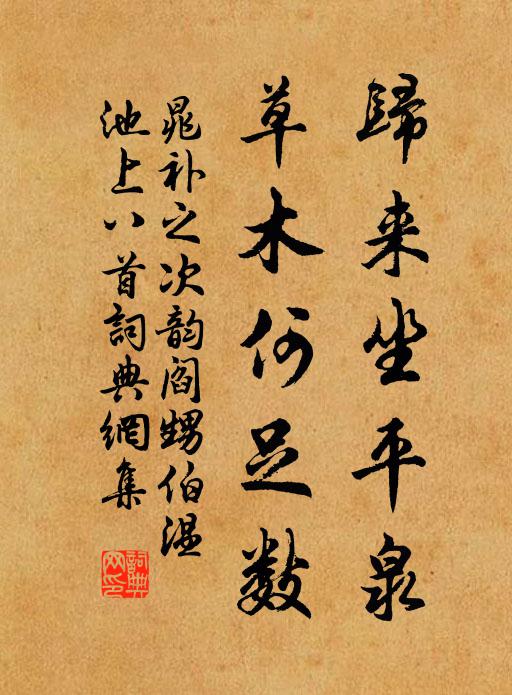 歸来坐平泉
草木何足数
晁补之次韵阎甥伯温
池上八首詞典網集
詞典网印